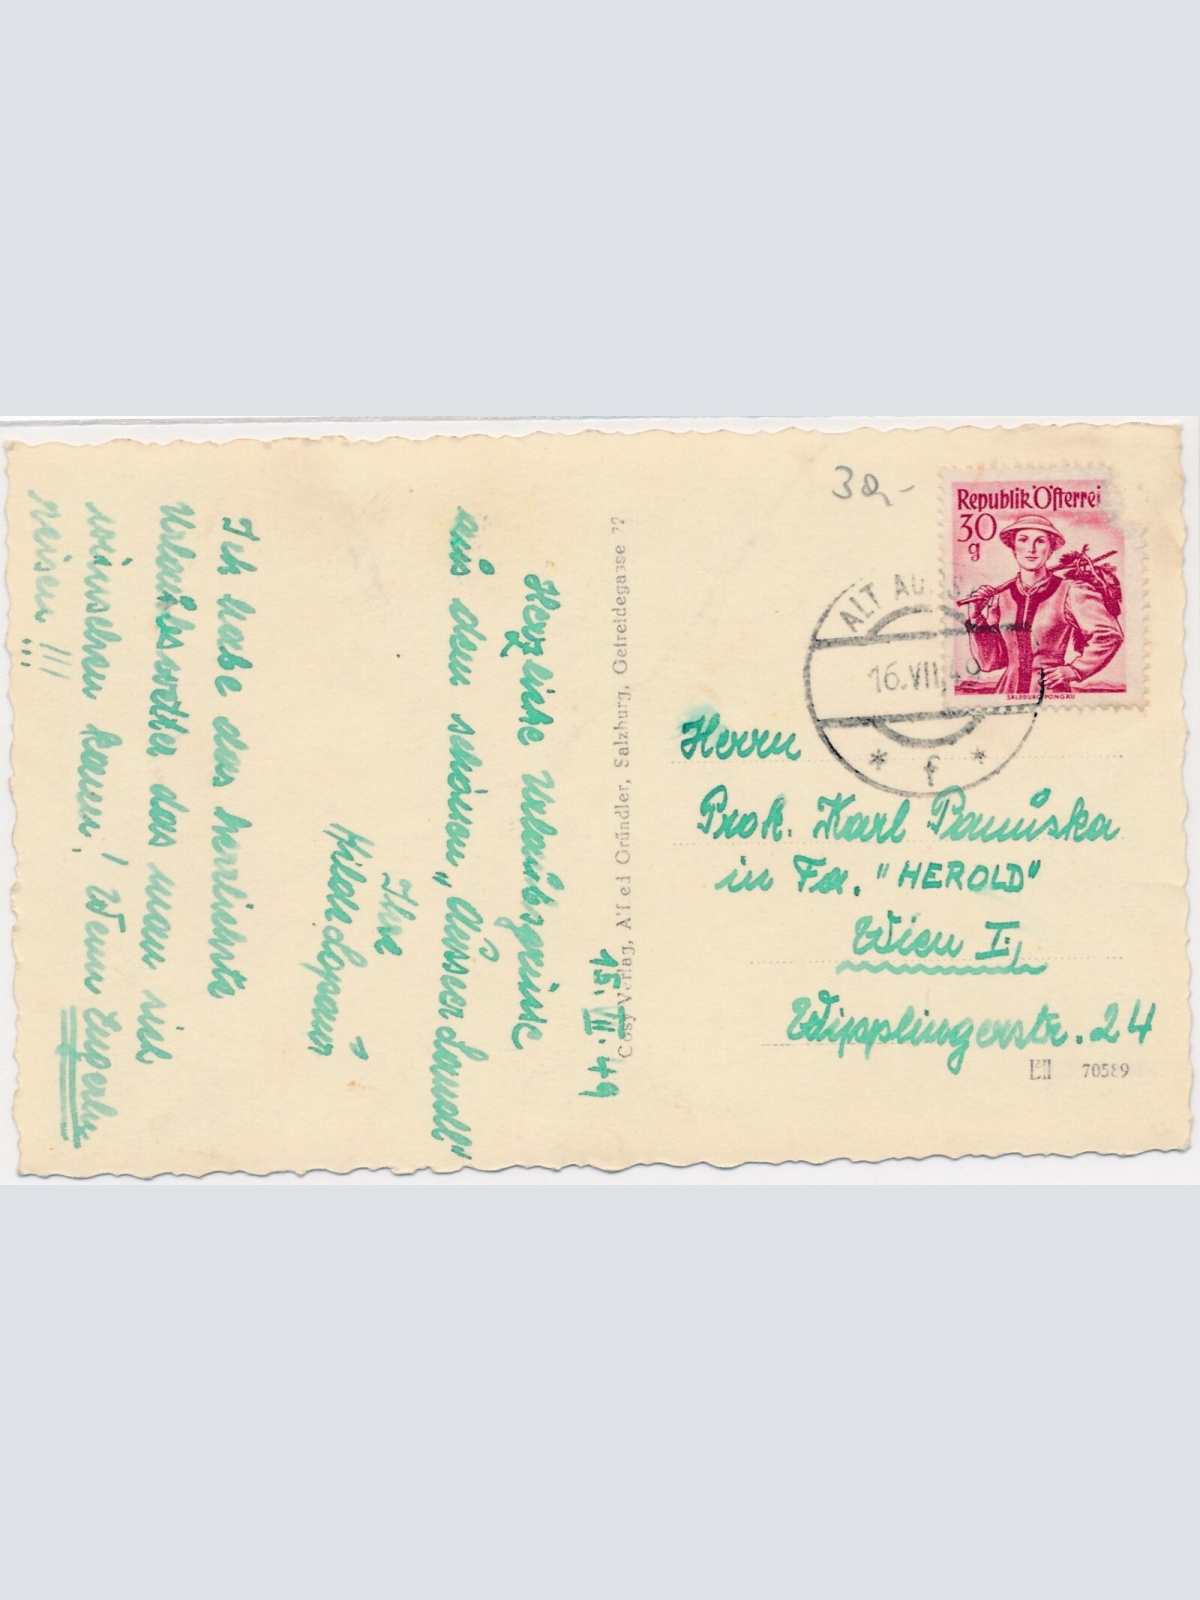 15. VII. 49
Herzliche Urlaubsgrüße
aus dem schönen „Ausserlandl"
Ihre
Hilde
Ich habe das herrlichste
Urlaubswetter das man sich
wünschen kann! Wenn
reisen!!!
Cosy Verlag, Alfred Gründler, Salzburg, Getreidegasse 22
30,-
Republik Österrei
30
g
SALZBURG, PONGAU
ALT AUSS
16.VII.49
* f *
Herrn
Prok. Karl Panuška
in Fa. "HEROLD"
Wien I.,
Wipplingerstr. 24
70589